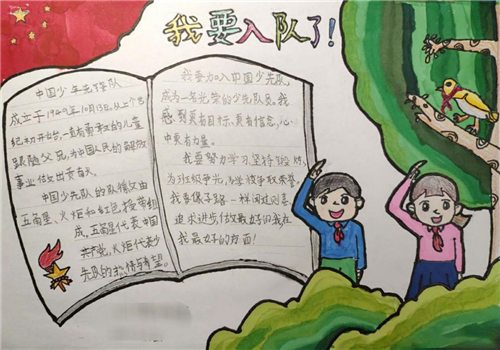 我要入队了!
中国少年先锋队
成立于1949年10月13日,从上个世
纪初开始,一直有勇敢的儿童
跟随父兄,为中国人民的解放
事业做出贡献。
中国少先队的队徽又由
五角星、火炬和红色绶带组
成,五角星代表中国
共产党,火炬代表少
先队的热情与希望。
我要加入中国少先队,
成为一名光荣的少先队员。我
感到更有目标,更有信念,心
中更有力量。
我要努力学习,坚持
为班级争光,为学校争取荣誉。
我要像子路一样闻过则喜
追求进步,做最好的我,在
我最好的方面!